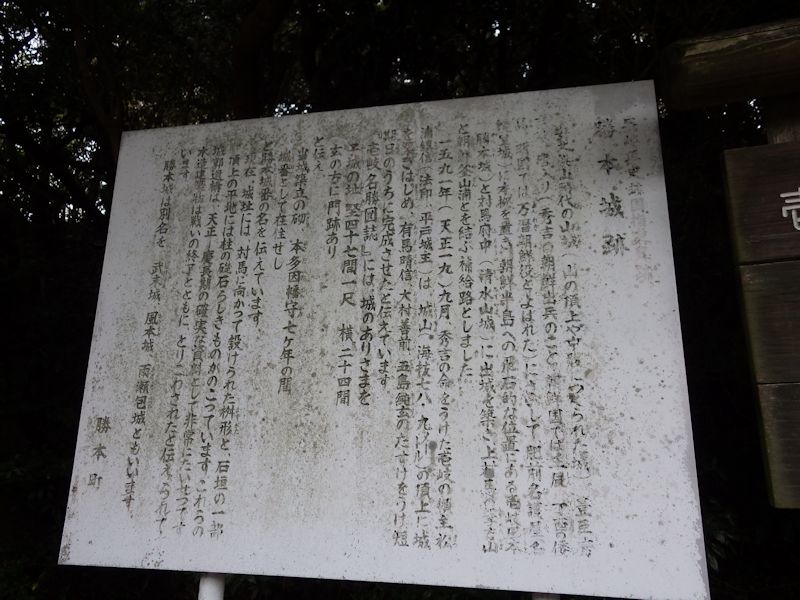 勝本城跡
山城(山の頂上や中腹につくられた城) 豊臣秀
秀吉の朝鮮出兵のこと 朝鮮国では
明国では万暦朝鮮役とよばれた)にさいして肥前名護屋
に本拠を置き 朝鮮半島への飛石的な位置にある壱岐
勝本城)と対馬府中(清水山城)に出城を築き上
と朝鮮釜山浦とを結ぶ補給路としました
一五九一年(天正一九)九月、秀吉の命をうけた壱岐の領主松
浦鎮信(法印・平戸城主)は 城山(海抜七八・九メートル)の頂上に城
をはじめ、有馬晴信、大村喜前、五島純玄のたすけをうけ短
期日のうちに完成させたと伝えています
『壱岐名勝図誌』には 城のありさまを
城の址 竪四十七間一尺 横二十四間
玄の方に門跡あり
と伝え
当城築立の砌 本多因幡守七ケ年の間
城番として在住せし
と勝本城番の名を伝えています
現在、城址には 対馬に向かって設けられた桝形と、石垣の一部
頂上の平地には柱の礎石らしきものがのこっています これらの
城郭遺構は 天正―慶長期の確実な資料として 非常にたいせつです
木造建築は戦いの終了とともに とりこわされたと伝えられて
います
勝本城は別名を 武末城 風本城 雨瀬包城ともいいます
勝本町
壱